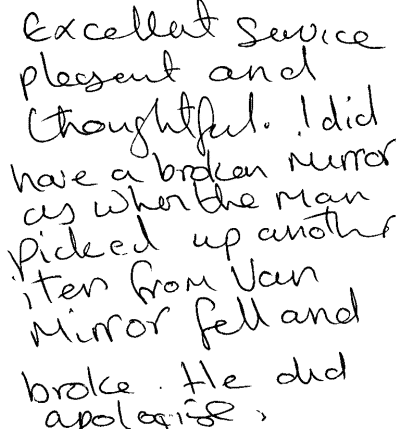 Excellent Service
plesent and
thoughtful. I did
have a broken mirror
as when the man
picked up another
item from Van
Mirror fell and
broke. He did
apologise.